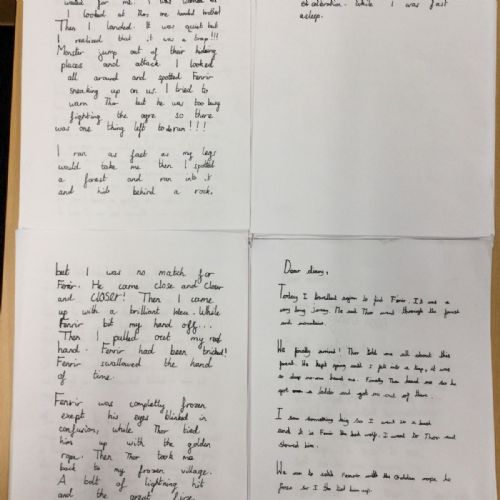 waited for me. I was worried as
I looked at Thor, me handed brother
Then I landed. It was quiet but
I realized that it was a trap!!!
Monster jump out of ther hideing
places and attack. I looked
all around and spotted Fenrir
sneaking up on us. I tried to
warn Thor but he was too busy
fighting the ogre so there
was one thing left to do run!!!
I ran as fast as my legs
would take me then I spotted
a forest and ran into it
and hid behind a rock,
of celebration. While I was fast
asleep.
but I was no match for
Fenrir. He came close and closer
and CLOSER! Then I came
up with a brilliant idea. While
Fenrir bit my hand off....
Then I pulled out my real
hand. Fenrir had been tricked!
Fenrir swallowed the hand
of time.
Fenrir was completly frozen
exept his eyes blinked in
confusion, while Thor tied
him up with the golden
rope. Then Thor took me
back to my frozen village.
A bolt of lightning hit
and the great fire
Dear diary,
Today I travelled again to find Fenrir. It was a
very long Jorney. Me and Thor went through the forest
and mountains.
We finally arrived! Thor told me all about this
forest. He kept going until I fell into a trap, it was
so deep no-one heard me. Finally Thor heard me so he
got a ladder and got me out of there.
I saw something big so I went in a bush
and it is Fenrir the bad wolf. I went to Thor and
showed him.
We ran to catch Fenrir with the Golden rope he